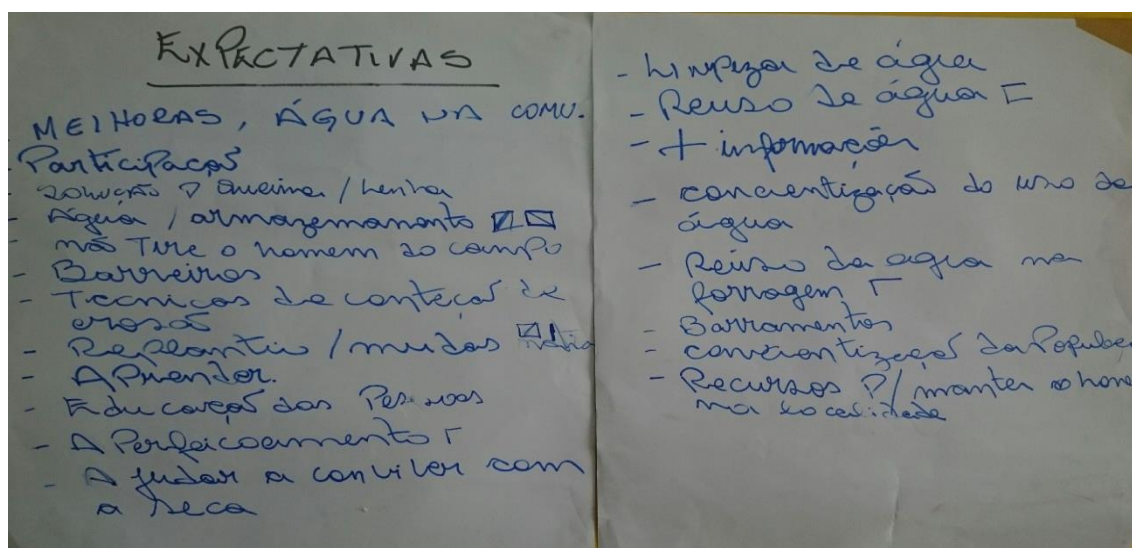 EXPECTATIVAS
MELHORAS, ÁGUA NA COMU.
- Participação
- SOLUÇÃO P Queima / Lenha
- Água / armazenamento
- não Tire o homem do campo
- Barreiros
- Tecnicas de conteção de
erosão
- Replantio / mudas nativa
- APrender.
- Educação das Pessoas
- APerfeiçoamento
- Ajudar a conviver com
a seca
- Limpeza de água
- Reuso de água
- + informação
- concientização do uso da
água
- Reúso da agua na
forragem
- Barramentos
- concientização da Populaç
- Recursos P/ manter o hom
na localidade